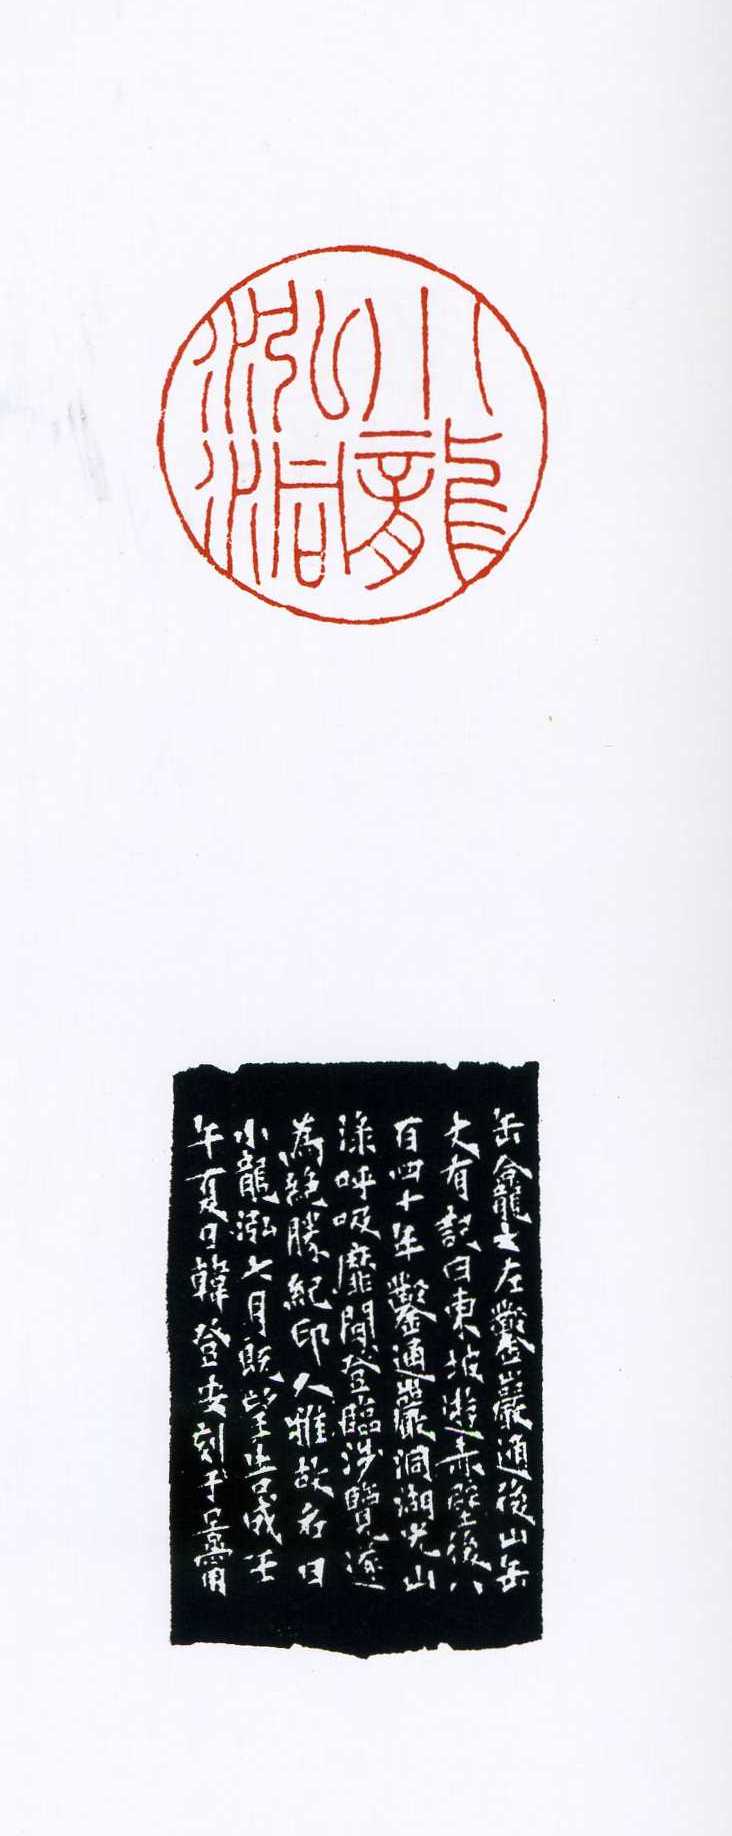 小龍
泓洞
缶龕之左鑿巖通後山缶
丈有記曰東坡游赤壁後八
百四十年鑿通巖洞湖光山
渌呼吸靡間登臨涉覽遂
為絕勝紀印人雅故名曰
小龍泓七月既望書成壬
午夏日韓登安刻于